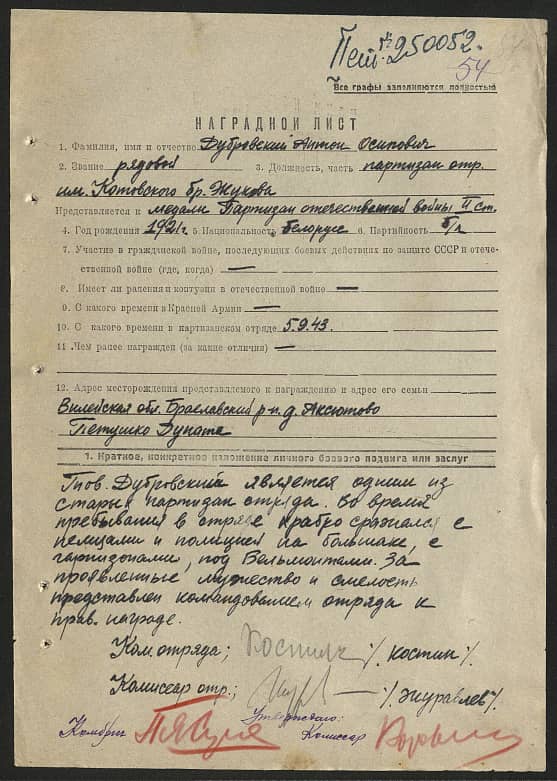 № 250052.
54
Все графы заполняются полностью
НАГРАДНОЙ ЛИСТ
1. Фамилия, имя и отчество Дубровский Антон Осипович
2. Звание рядовой 3. Должность, часть партизан отр.
им. Котовского бр. Жукова
Представляется к медали Партизан отечественной войны II ст.
4. Год рождения 1921 г. 5. Национальность белорус 6. Партийность б/п
7. Участие в гражданской войне, последующих боевых действиях по защите СССР и отече-
ственной войне (где, когда) —
8. Имеет ли ранения и контузии в отечественной войне —
9. С какого времени в Красной Армии —
10. С какого времени в партизанском отряде 5.9.43.
11. Чем ранее награжден (за какие отличия) —
12. Адрес месторождения представляемого к награждению и адрес его семьи
Вилейская обл. Браславский р-н д. Аксютово
Петушко
1. Краткое, конкретное изложение личного боевого подвига или заслуг
Тов. Дубровский является одним из
старых партизан отряда. Во время
пребывания в отряде храбро сражался с
немцами и полицией на большаке, с
гарнизонами, под Вельмонтами. За
проявленные мужество и смелость
представлен командованием отряда к
прав. награде.
Ком. отряда; /. Костин /.
Комиссар отр.; /. Журавлев /.
Утверждаю:
Комбриг Комиссар